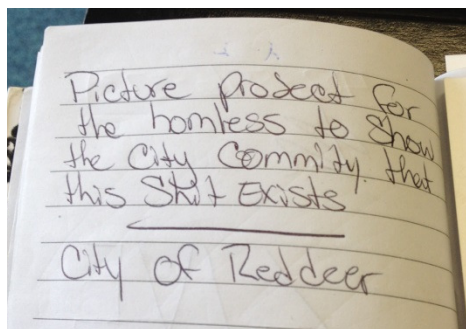 Picture prodect for
the homless to Show
the City Commity that
this Shit Exists
City of Reddeer